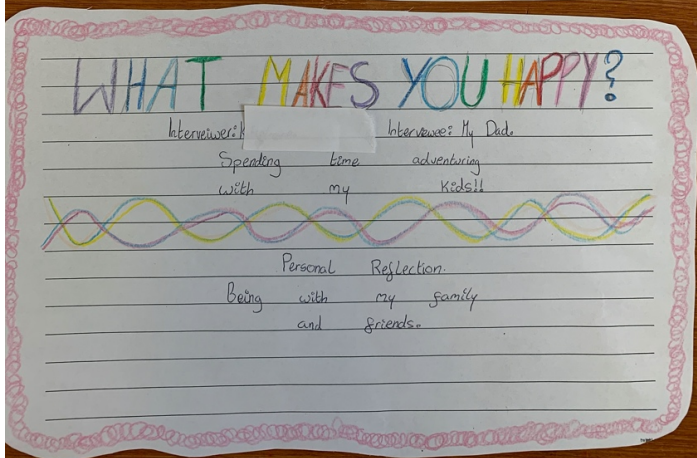 WHAT MAKES YOU HAPPY?
Interveiwer: Intervewee: My Dad.
Spending time adventuring
with my Kids!!
Personal Reflection.
Being with my family
and friends.